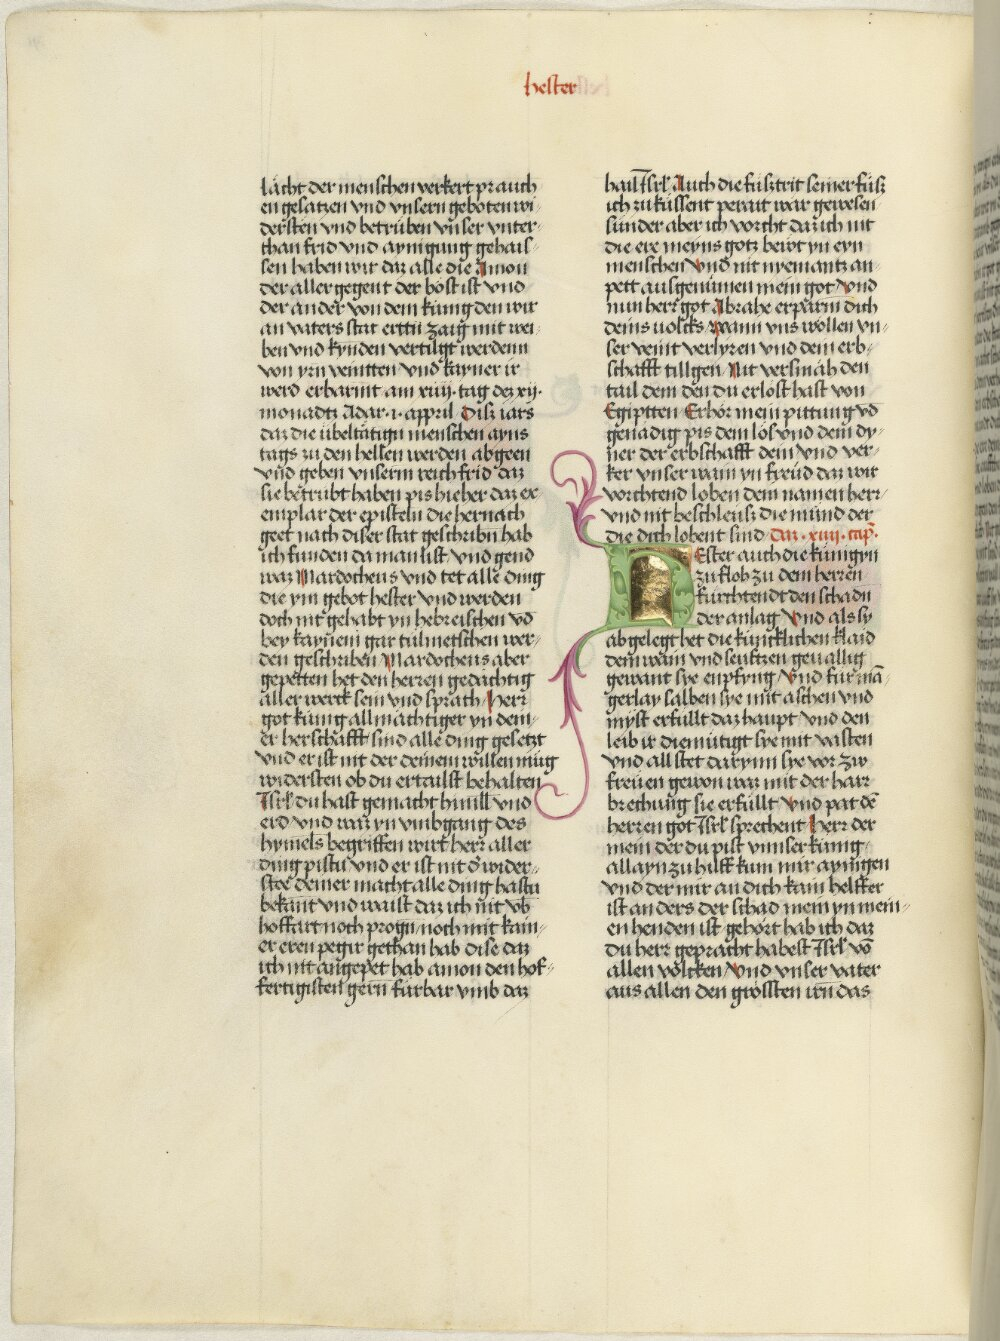 hester
lächt der menschen verkert pz auch
en gesatzen vnd vnsern geboten wi-
dersten vnd betrüben vnser vnter-
than frid vnd aynigung gehais-
sen haben wir daz alle die amon
der aller gegent der böst ist vnd
der ander von dem künig den wir
an vaters stat erttn zaig mit wei-
ben vnd kynden vertilgt werdenn
von yrn veintten vnd kayner ir
werd erbarmt am xiiij. tag dez xij.
monadtz Adar .i. appril Disz iars
daz die übeltätign menschen ayns
tags zu den hellen werden abgeen
vnd geben vnserm reich frid daz
sie betrübt haben pis hieher daz ex
emplar der episteln die hernach
geet nach diser stat geschribn hab
ich funden da man list vnd gend
waz Mardocheus vnd tet alle ding
die ym gebot hester vnd werden
doch nit gehabt yn hebreischen vō
bey kaynem gar tulmetschen wer-
den geschriben Mardocheus aber
gepetten het den herren gedächtig
aller werck sein vnd sprach Herr
got künig allmächtiger yn dein-
er herschafft sind alle ding gesetzt
vnd er ist nit der deinem willen müg
widersten ob du ertailst behalten
Isrl du hast gemacht himll vnd
erd vnd waz yn vmbgang des
hymels begriffen wirt herr aller
ding pistu vnd er ist nit d wider-
stee deiner macht alle ding hastu
bekant vnd waist daz ich nit vō
hoffart noch progn noch mit kain-
er eren pegir gethan hab dise daz
ich nit angepet hab amon den hof-
fertigisten gern fürbar vmb daz
hail Isrl Auch die fusztrit seiner füsz
ich zu küssent perait war gewesen
sunder aber ich vorcht daz ich nit
die ere meyns gotz bewt yn eyn
menschen vnd nit nyemantz an-
pett ausgenumen mein got vnd
nun herr got Abrahe erparm dich
deins volcks wann vns wollen vn-
ser veint verlyzen vnd dein erb-
schafft tillgen Nit versmäh den
tail dem den du erlost hast von
Egiptten Erhör mein pittung vō
genadig pis dem los vnd dem dy-
ner der erbschafft dein vnd ver-
ker vnser wain yn freüd daz wir
vorchtend loben dem namen herr
vnd nit beschleusz die münd der
die dich lobent sind Daz .xiiij. cap.
HEster auch die künigyn
zu floh zu dem herren
fürchtendt den schadn
der anlag vnd als sy
abgelegt het die künicklichen klaid
dem wain vnd seuftzen geuallig
gewant sye enpfyng vnd für mā-
gerlay salben sye mit aschen vnd
myst erfüllt daz haupt vnd den
leib ir diemütigt sye mit vasten
vnd all stet darynn sye vor zw
freüen gewon war mit der harr
brechung sie erfüllt vnd pat dē
herren got Isrl sprechent Herr der
mein der du pist vnnser künig
allayn zu hilff kum mir aynigen
vnd der mir an dich kain helffer
ist anders der schad mein yn mein-
en henden ist gehört hab ich daz
du herr gepracht habest Isrl vō
allen völcken vnd vnser väter
aus allen den grössten irn das